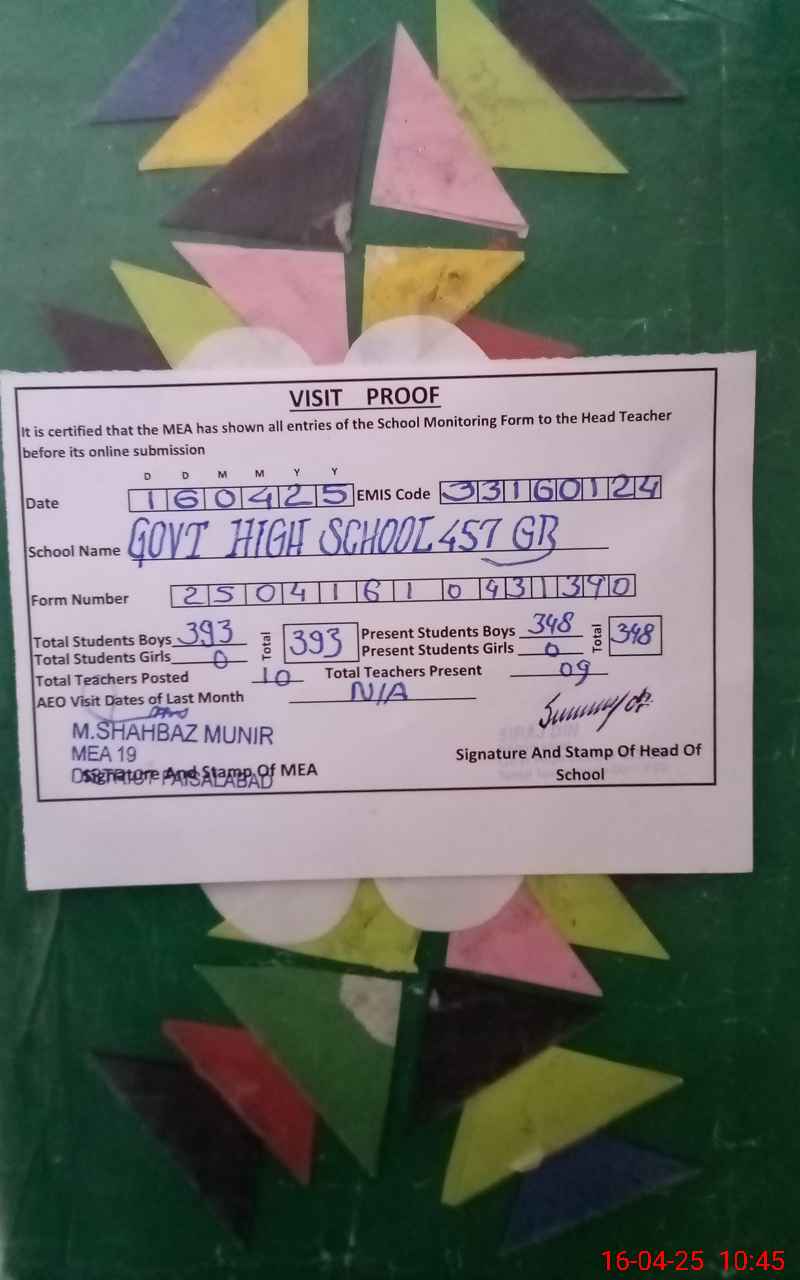 VISIT PROOF
It is certified that the MEA has shown all entries of the School Monitoring Form to the Head Teacher
before its online submission
D D M M Y Y
Date 160425 EMIS Code 33160124
School Name GOVT HIGH SCHOOL 457 GB
Form Number 2504161
Total Students Boys 393 Total 393 Present Students Boys 348 Total 348
Total Students Girls 0 Present Students Girls 0
Total Teachers Posted 10 Total Teachers Present 09
AEO Visit Dates of Last Month N/A
M.SHAHBAZ MUNIR
MEA 19
DISTRICT FAISALABAD
Signature And Stamp Of MEA
Signature And Stamp Of Head Of
School
16-04-25 10:45